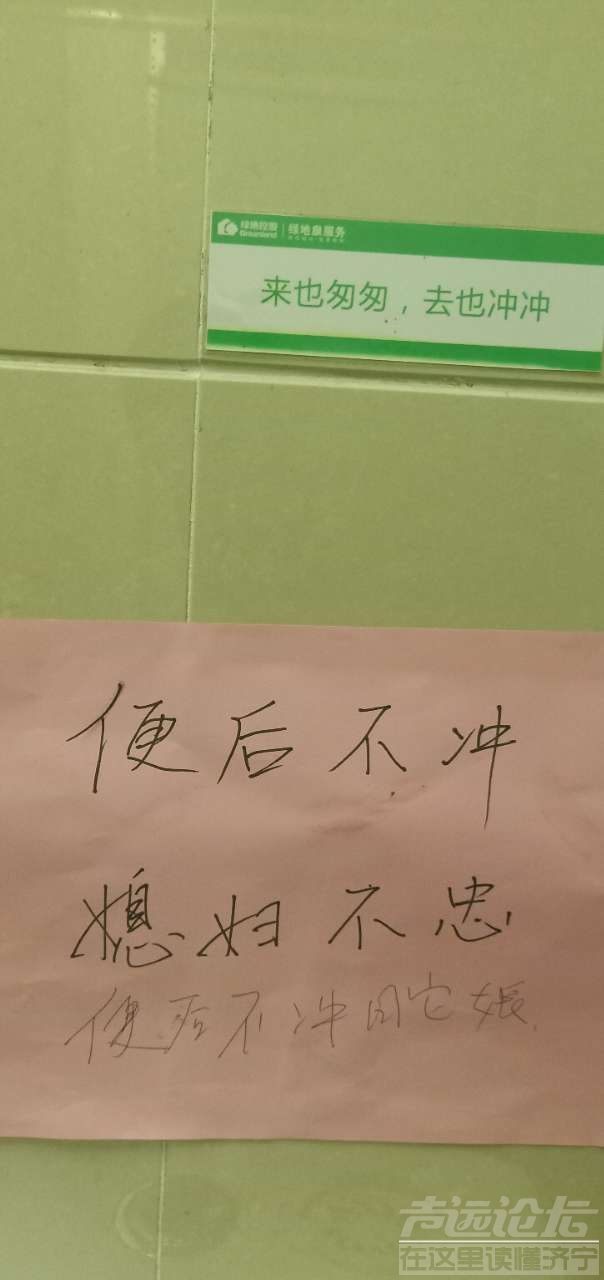 绿地控股 绿地泉服务
Greenland
来也匆匆，去也冲冲
便后不冲
媳妇不忠
便后不冲日它娘
声远论坛
在这里读懂济宁